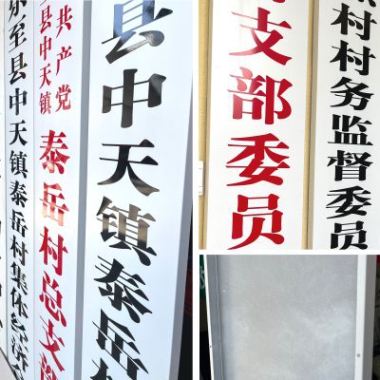 乐至县中天镇泰岳村集体经济
共产党
县中天镇
泰岳村总支部
县中天镇泰岳村
支部委员
村村务监督委员